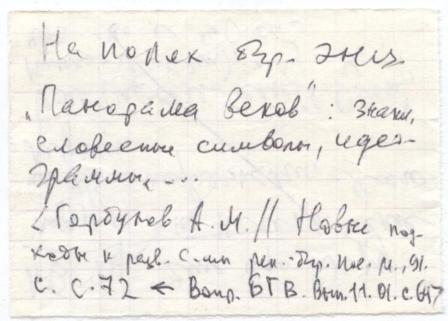 На полях бгр. энц.
„Панорама веков“: знаки,
словесные символы, идео-
граммы, ...
< Горбунов А.М. // Новые под-
ходы к разв. с-мы рек. бгр. пос. М., 91.
с. С. 72 ← Вопр. БГВ. Вып. 11. 01. с. 67